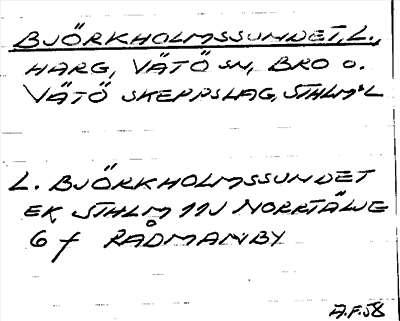 BJÖRKHOLMSSUNDET, L.,
HARG, VÄTÖ SN, BRO O.
VÄTÖ SKEPPSLAG, STHLM:S L
L. BJÖRKHOLMSSUNDET
EK STHLM 11J NORRTÄLJE
6 f RÅDMANBY
A.F. 58